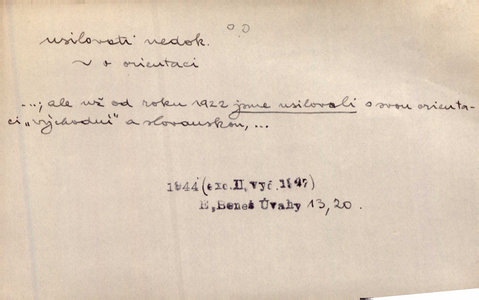 usilovati nedok.
~ o orientaci
...; ale už od roku 1922 jsme usilovali o svou orienta-
ci „východní“ a slovanskou, ...
1944 (exc. II. vyd. 1947)
E. Beneš Úvahy 13,20.